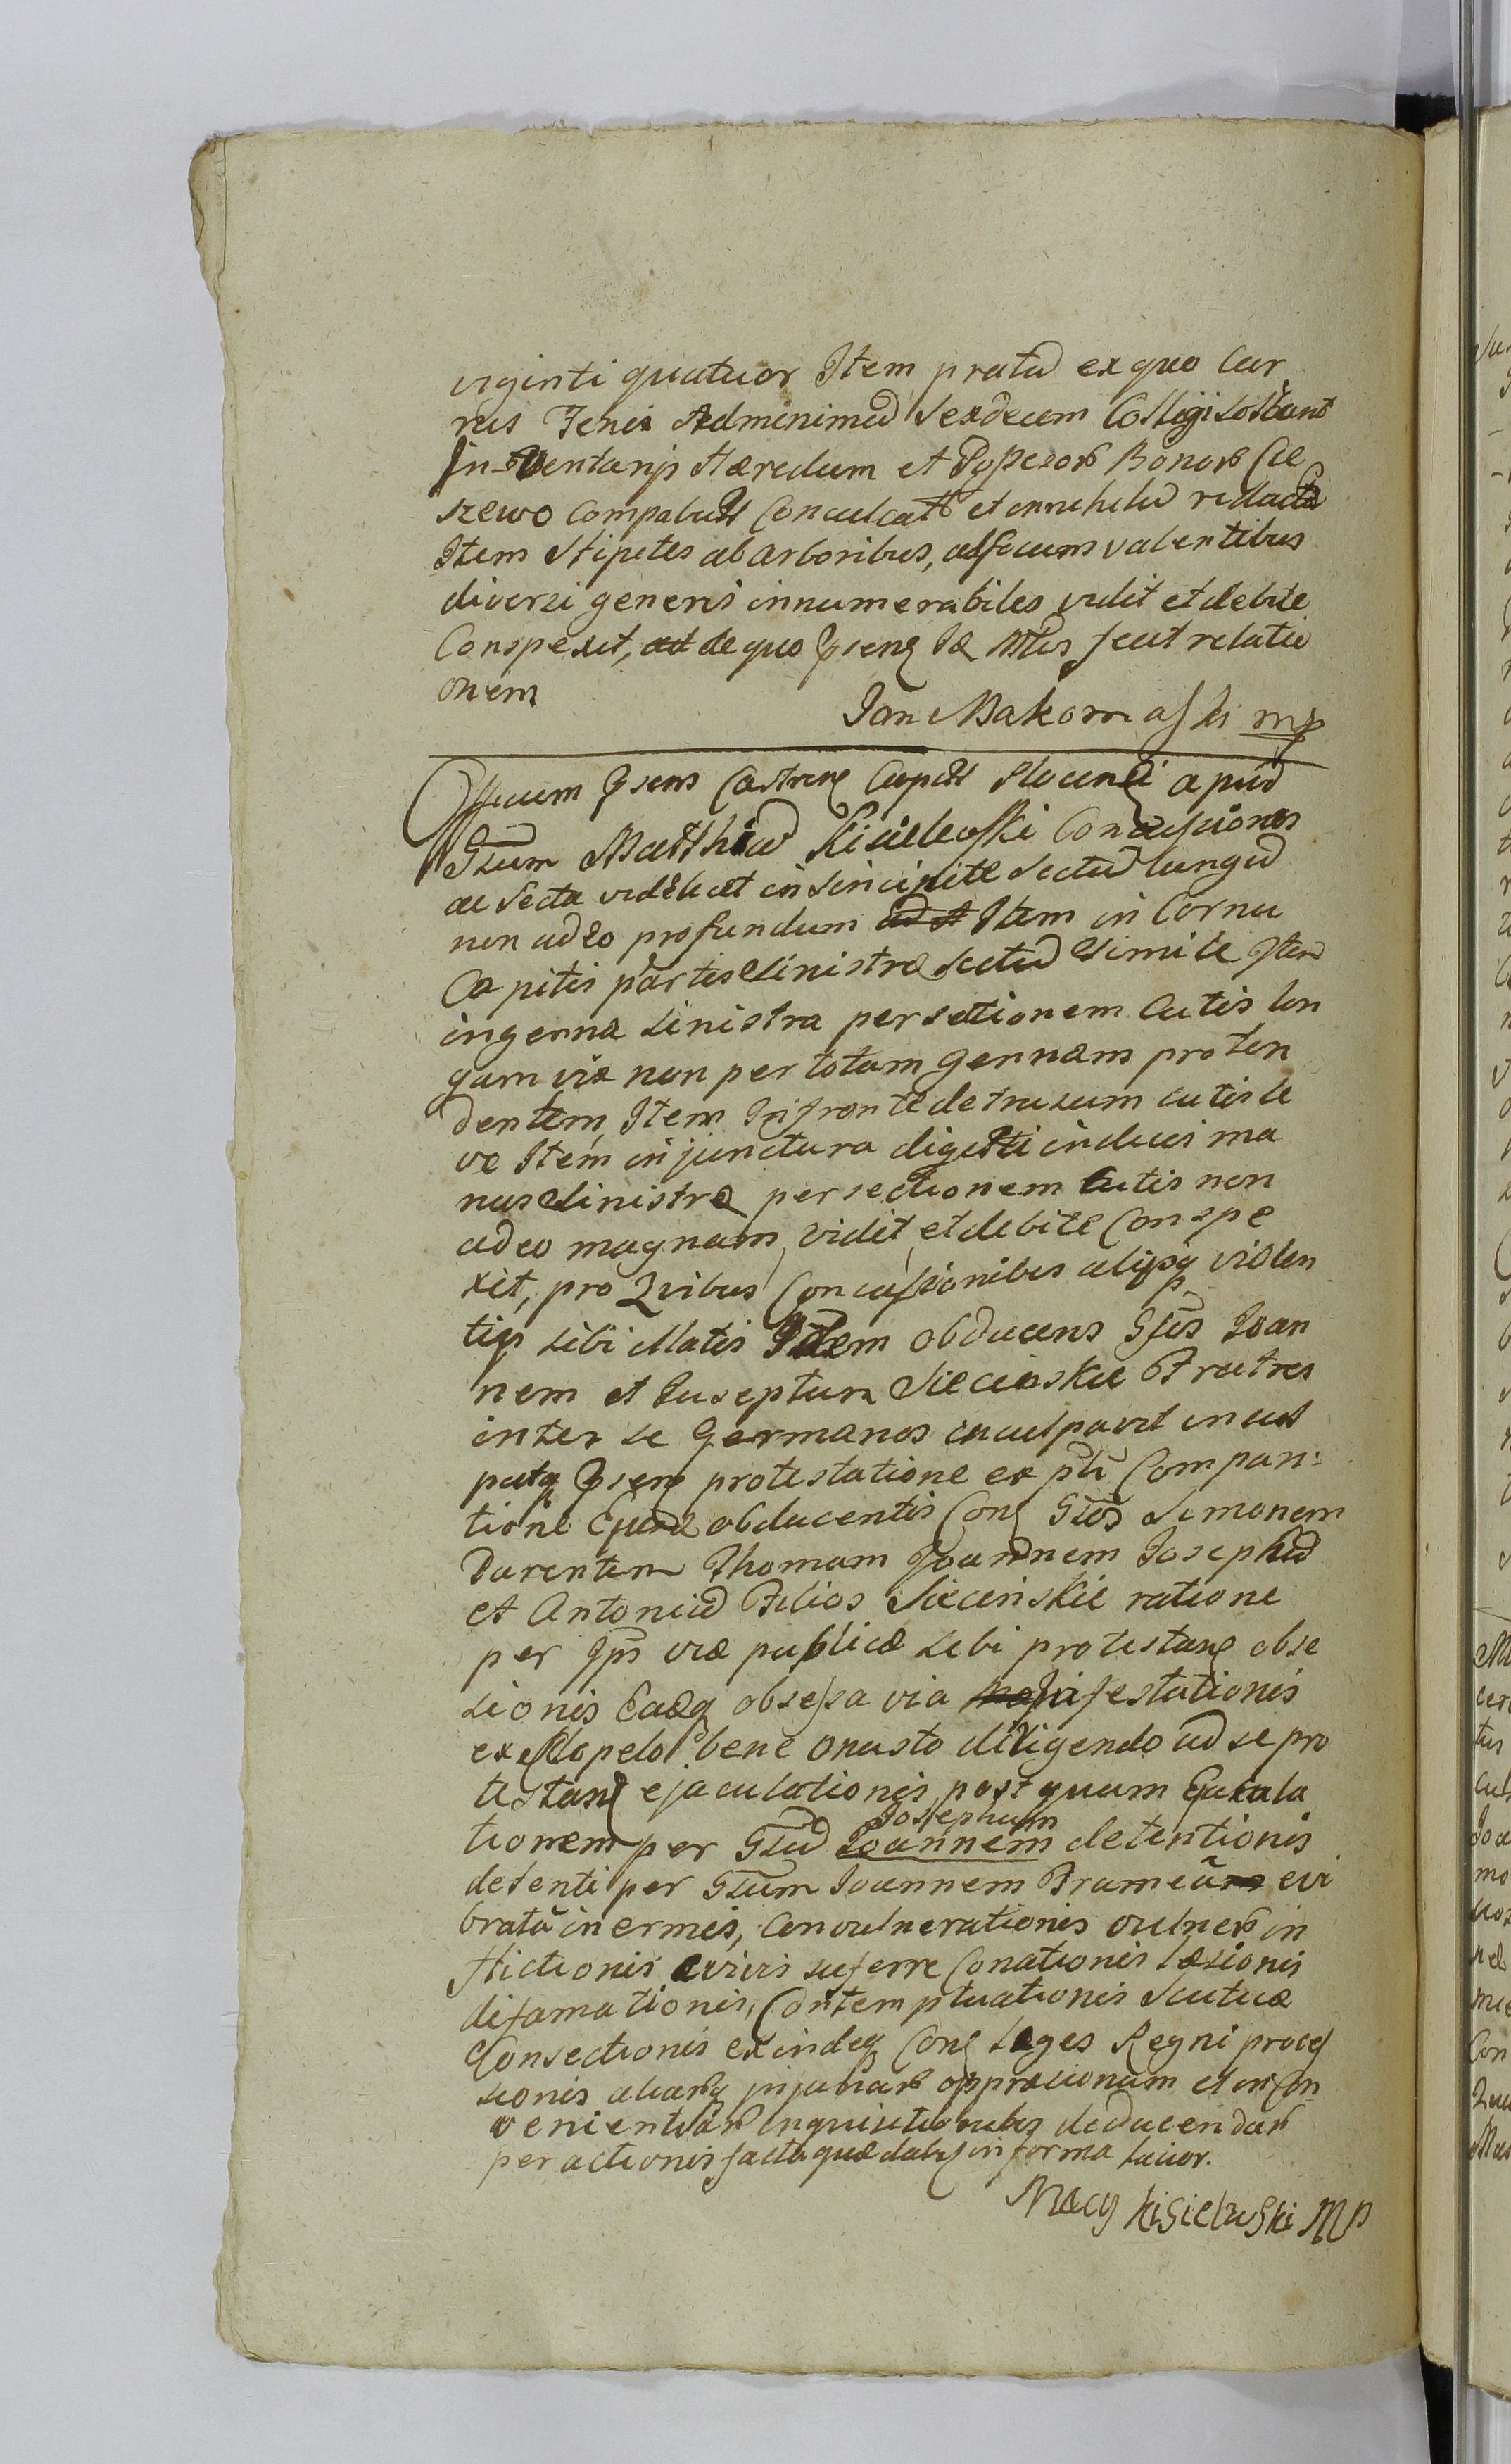 viginti quatuor Item pratū ex quo Cur
rus Feni Adminimū Sexdecem Colligi
In Haeredum et Bonorū Cie
szewo Conculcatū et redacta
Item Stipetes ab arboribus, ad focum valentibus
diversi generis innumerabiles vidit et debite
Conspexit, de quo fecit relatio
onem
Jan Makomaski mp
Officum Castren Capit Plocen apud
Gsum Matthiā Kisielewski Concussiones
ac Secta videlicet in sincipite Sectū longū
non adeo profundum Item in Cornu
Capitis partis Sinistrae Sectū Simile Item
in genna sinistra persectionem Cutis lon
gam vix non per totam gennam proten
dentem, Item In fronte detrusum cutis le
ve Item in junctura digiti indicis ma
nus Sinistrae persectionem Cutis non
adeo magnam, vidit et debite Conspe
xit, pro Quibus Concussionibus alijsq violen
tijs sibi illatis Idem obducens Gsos Joan
nem et Siecienskie Fratres
inter se Germanos inculpavit incul
patq protestatione ex Compari:
tione obducentis Con Gsos Simonem
Parentem Thomam Joannem Josephū
et Antoniū Filios Siecinskie ratione
per Ips viae publicae sibi protestan obse
sionis Eadq obsessa via festationis
ex bene onusto dirigendo ad se pro
testan ejaculationis, post quam
tionem per Gsū Joannem Josephum detentionis
detenti per Gsum Joannem Frameā evi
bratā inermis, Convulnerationis vulnerū in
flictionis e vivis auferre Conationis laesionis
difamationis, Contemptuationis Scuticae
Consectionis exindeq Con Leges Regni proces
sionis aliarūq injuriarū oppraesionum et in con
venientiārū deducendarū
per actionis facta quae in forma lacior.
Macy Kisielewski MP